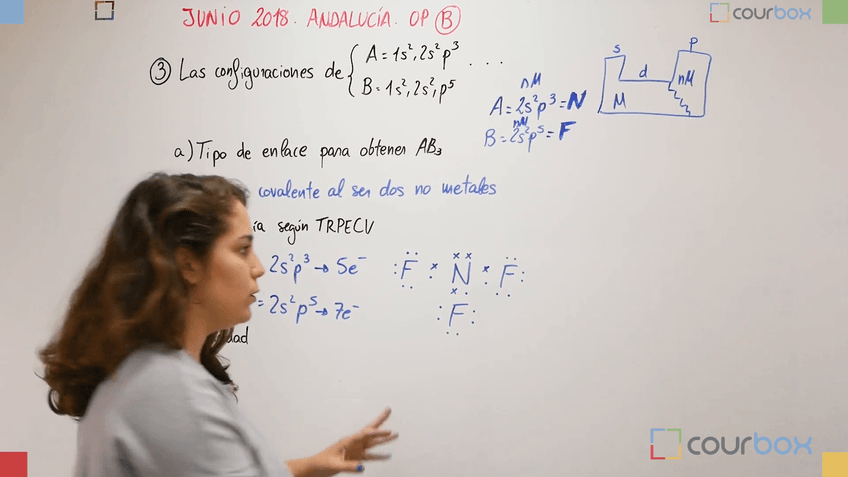 JUNIO 2018. ANDALUCÍA. OP B
courbox
③ Las configuraciones de { A = 1s², 2s²p³ . . .
B = 1s², 2s², p⁵
nM
A = 2s²p³ = N
nM
B = 2s²p⁵ = F
s
p
d
nM
M
a) Tipo de enlace para obtener AB₃
covalente al ser dos no metales
según TRPECV
2s²p³ → 5e⁻
= 2s²p⁵ → 7e⁻
F N F
F
courbox